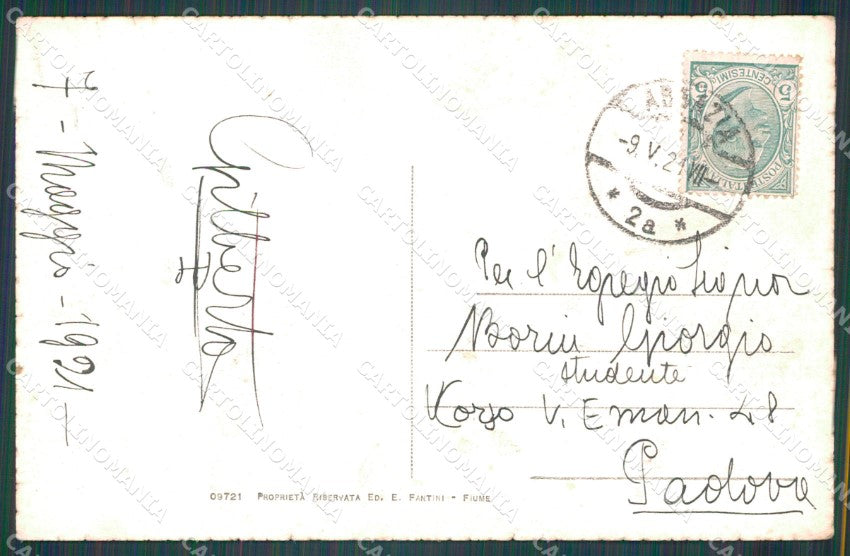 7 - Maggio - 1921
Gilberto
ABBAZIA
-9.V.21 VII-
* 2a *
POSTE ITALIANE
CENTESIMI
5 5
Per l' Egregio Signor
Borin Giorgio
studente
Korzo V. Eman. 48
Padova
09721 PROPRIETÀ RISERVATA ED. E. FANTINI - FIUME
CARTOLINOMANIA